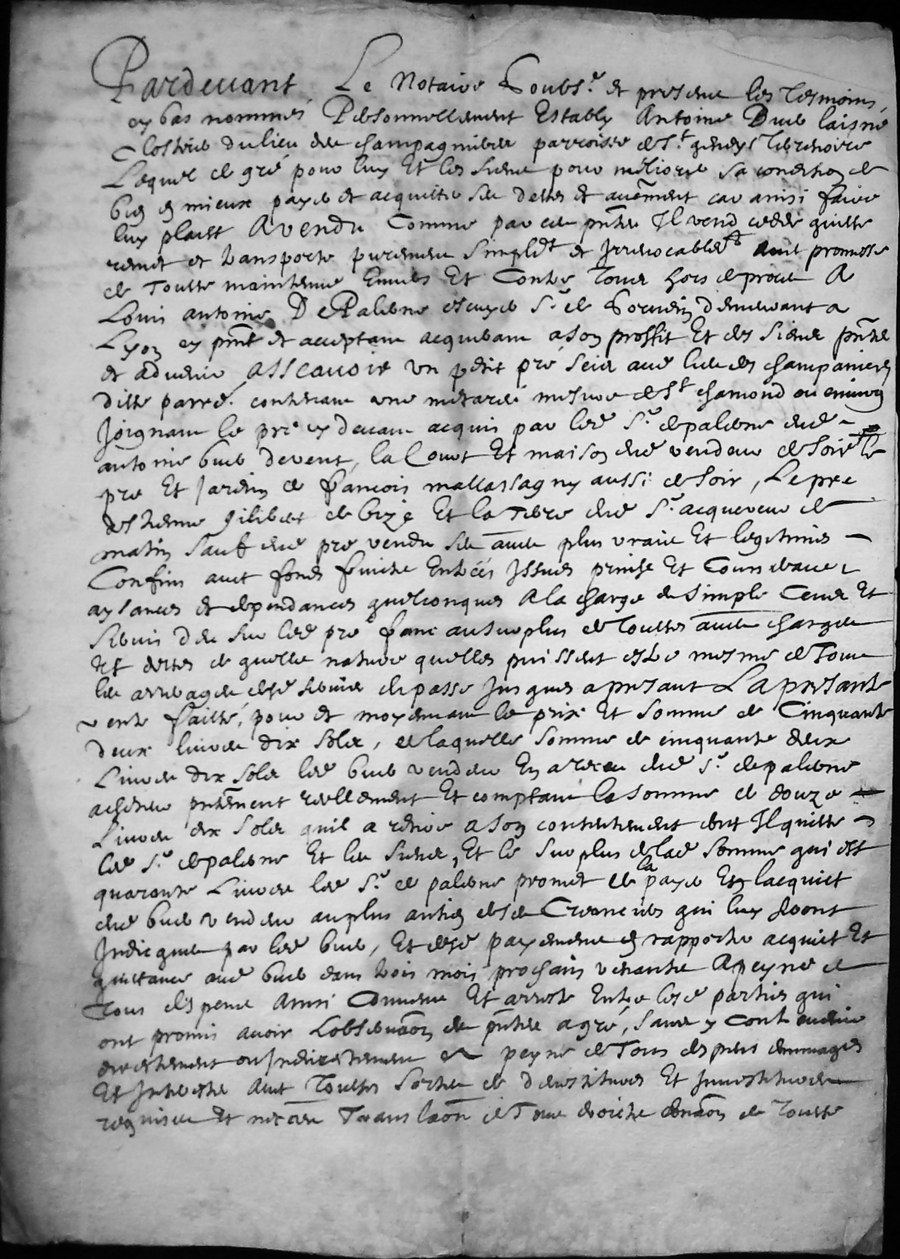 Pardevant Le Notaire Soubsr. et presence les tesmoins
ey bas nommés Personnellement Estably Antoine Buis laisné
Closteur du lieu de champagnieres parroisse de St geneys Terrenoire
Lequel de gré pour luy Et les siens pour meliorer sa condition et
bien et mieux payer et acquitter ses debtes et autrement car ainsi faire
luy plaist A vendu Comme par ces pntes Il vend cedde quitte
remet et transporte purement simplemt et Irrevocablemt avec promesse
de toutte maintenue Envers Et Contre Tous hors de proces A
Louis antoine De Paliene escuyer Sr. de demeurant a
Lyon ey pnt et acceptant acquerant a son proffit Et des siens pnts
et advenir asscavoir un petit pré scis aud lieu des champanieres
ditte parre. contenant une meterée mesure de St chamond ou environ
Joignant le pré ey devant acquis par led Sr. de paliene dud
antoine buis de vent, la Court Et maison dud vendeur de soir le
pre Et Jardin de francois mallassagny aussi de soir, Le pre
destienne gilibert de bize Et la Terre dud Sr. acquereur de
matin sauf dud pre vendu ses autres plus vrais Et legitimes
Confins avec fonds fruicts Entrées Issues prinse Et Cours deaux
aysances et dependances quelconques A la charge du simple Cens Et
servis deu sur led pre franc au surplus de touttes autres charges
Et debtes de quelle nature quelles puissent estre mesme de tous
les arreages desd servis du passé Jusques a present La presante
vente faitte, pour et moyennant le prix Et somme de Cinquante
deux livres dix solz, de laquelle somme de cinquante deux
Livres dix solz led buis vendeur En a receu dud Sr. de paliene
achepteur pntement reellement Et comptant la somme de douze
Livres dix solz quil a retiré a son contentement dont Il quitte
led Sr. de paliene Et les siens, Et le surplus de lad somme qui est
quarante Livres led Sr. de paliene promet de la payer En lacquict
dud buis vendeur au plus antien de ses Creanciers qui luy seront
Indiqués par led buis, Et desd payements en rapporter acquict Et
quittance aud buis dans trois mois prochain venants A peyne de
Tous despens Ainsi Convenu Et arresté Entre lesd parties qui
ont promis avoir Lobservaon des pntes agré, sans y Contrevenir
directement ou Indirectement a peyne de Tous despens dommages
Et Interests avec Touttes sortes de devestitures Et Investitures
requises Et necres Translaon de Tous droicts de Toutte